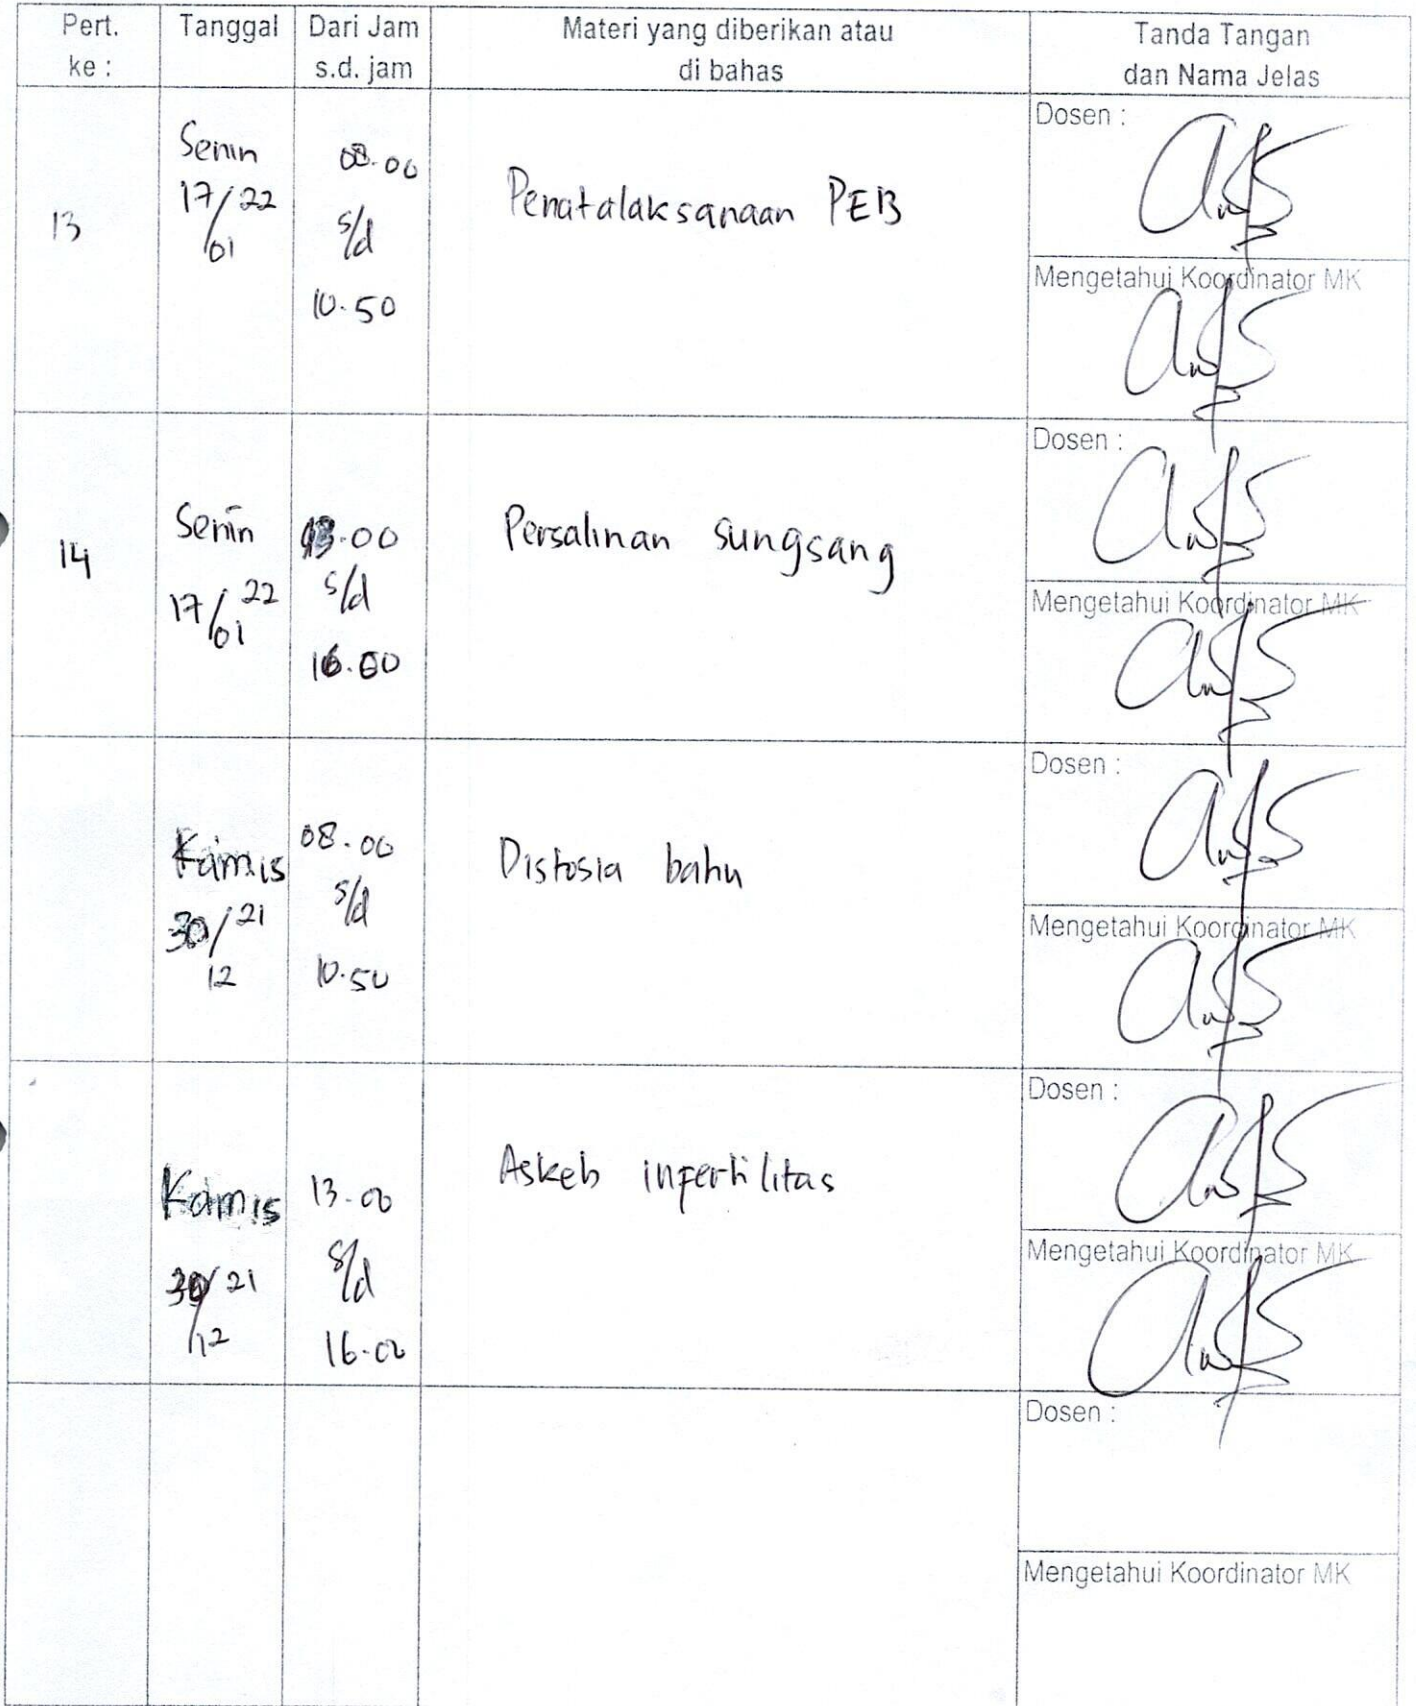 Pert.
ke :
Tanggal
Dari Jam
s.d. jam
Materi yang diberikan atau
di bahas
Tanda Tangan
dan Nama Jelas
13
Senin
17/22
01
08.00
s/d
10.50
Penatalaksanaan PEB
Dosen :
Mengetahui Koordinator MK
14
Senin
17/22
01
13.00
s/d
16.00
Persalinan sungsang
Dosen :
Mengetahui Koordinator MK
Kamis
30/21
12
08.00
s/d
10.50
Distosia bahu
Dosen :
Mengetahui Koordinator MK
Kamis
30/21
12
13.00
s/d
16.00
Askeb infertilitas
Dosen :
Mengetahui Koordinator MK
Dosen :
Mengetahui Koordinator MK